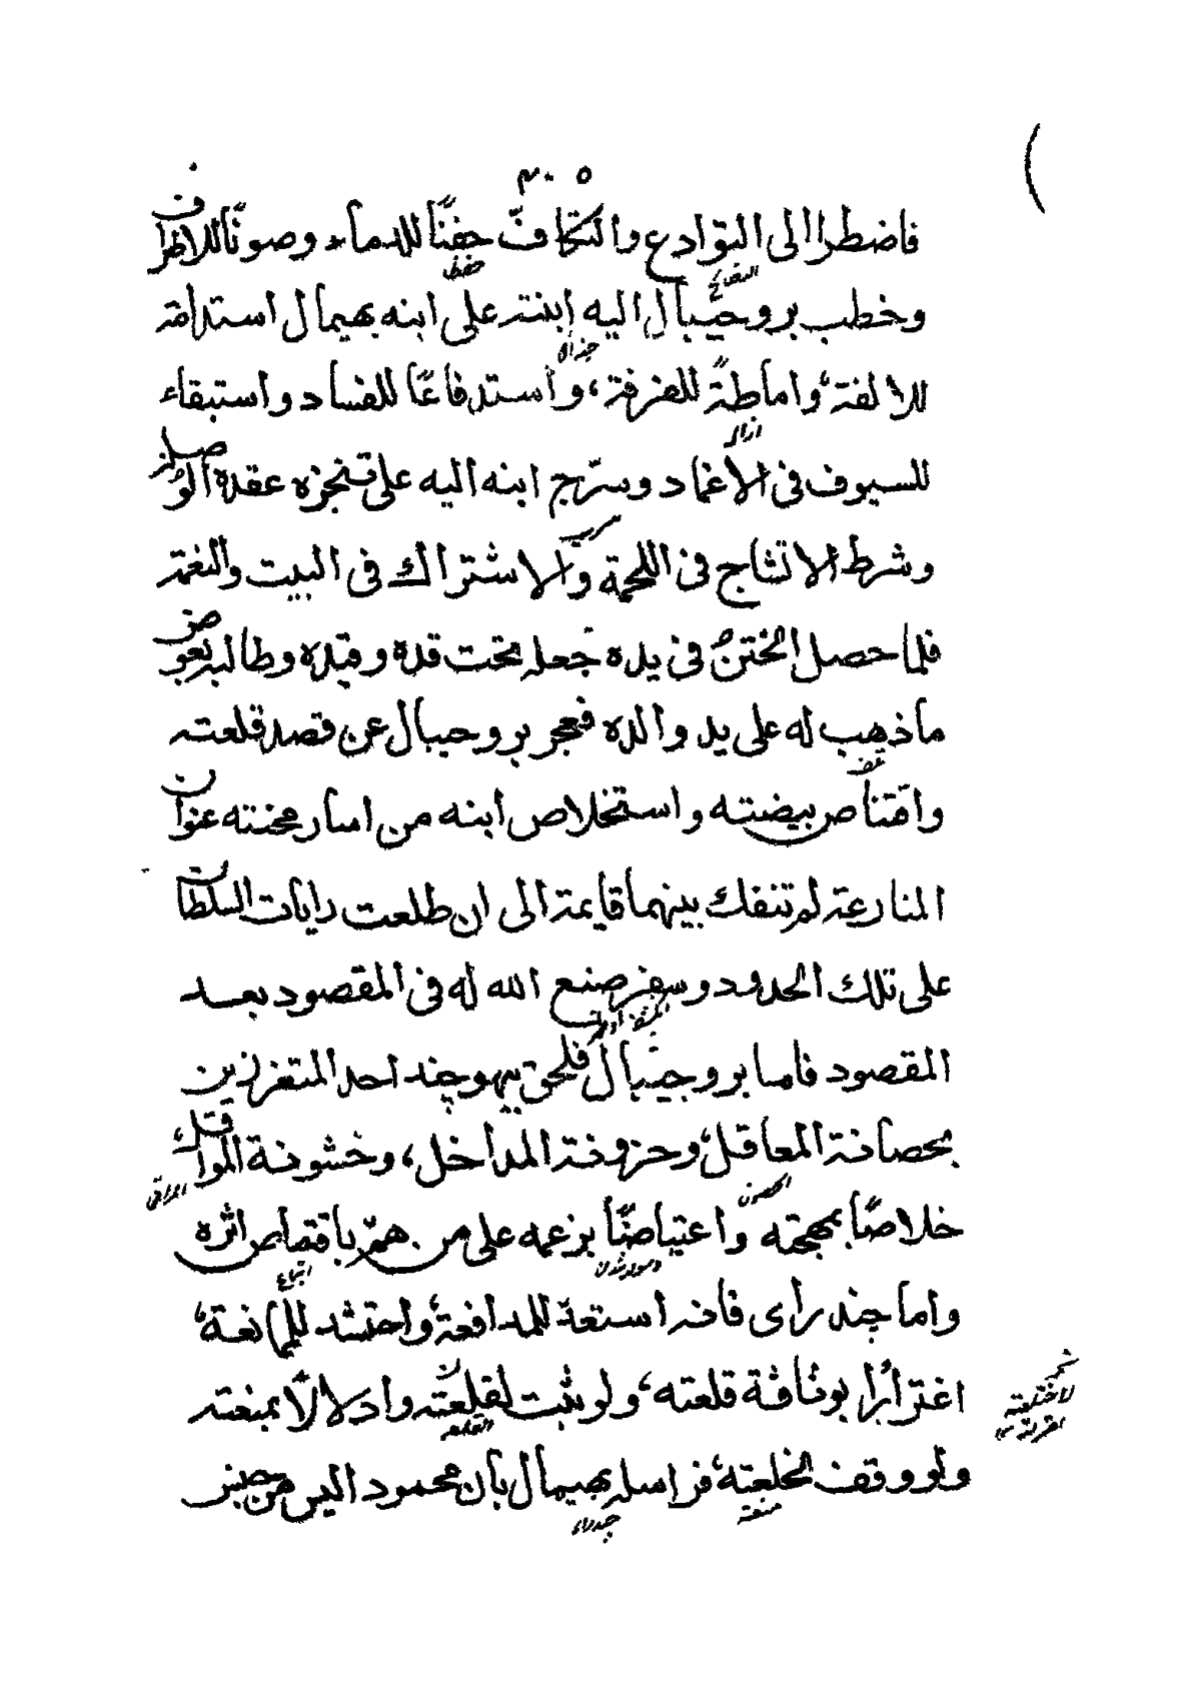 ٣٠٥
فاضطرا الى التوادع والتكافّ حقنًا للدماء وصونًا للاطراف
وخطب بروجيبال اليه ابنته على ابنه بهيمال استدامة
للالفة، واماطةً للفرقة، واستدفاعًا للفساد واستبقاء
للسيوف فى الاغماد وسرّج ابنه اليه على تنجزه عقدة الوصلة
وشرط الانتتاج فى اللحمة والاشتراك فى البيت والنعمة
فلما حصل الختنُ فى يده جعله تحت قده وقيده وطالبه بعوض
ما ذهب له على يد والده فعجز بروجيبال عن قصد قلعته
واقتناص بيضته واستخلاص ابنه من اسار محنته عنوان
المنازعة لم تنفك بينهما قايمة الى ان طلعت رايات السلطان
على تلك الحدود وسفر صنع الله له فى المقصود بعد
المقصود فاما بروجيبال فلحق ببهوجند احد المتعززين
بحصانة المعاقل، وحزونة المداخل، وخشونة المواقل
خلاصًا بمهجته واعتياصًا بزعمه على من همّ باقتصاص اثره
واما چند راى فانه استعدّ للمدافعة، واحتشد للممانعة،
اغترارًا بوثاقة قلعته، ولو ثبت لقلعته وادلالًا بمنعته
ولو وقف لخلعته، فراسله بهيمال بأن محمود اليس من جنس